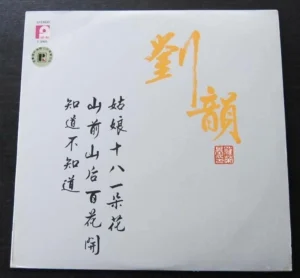 劉
韻
姑娘十八一朵花
山前山后百花開
知道不知道